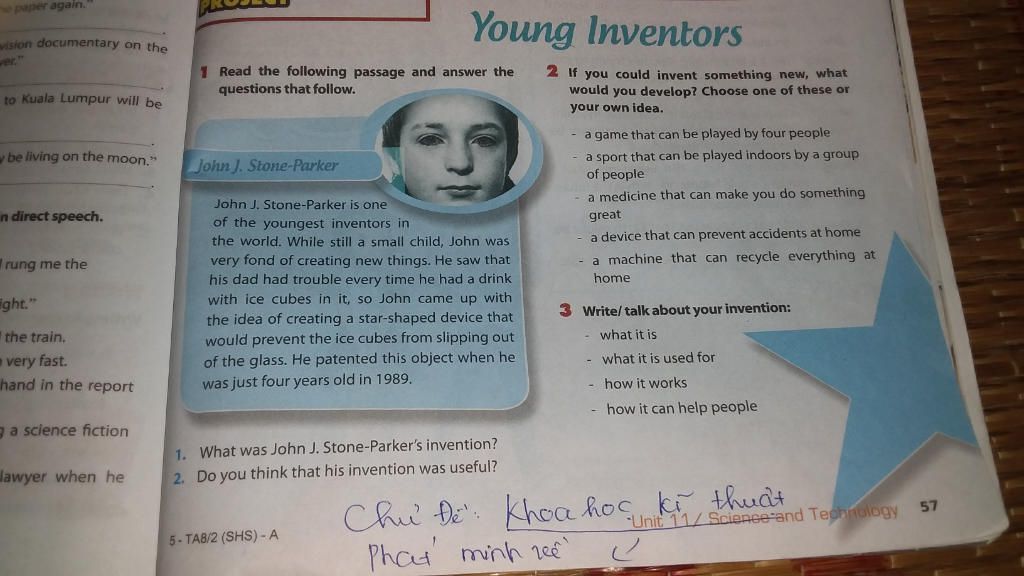 PROJECT
e paper again."
vision documentary on the
ver."
to Kuala Lumpur will be
y be living on the moon."
n direct speech.
rung me the
ight."
the train.
very fast.
hand in the report
g a science fiction
lawyer when he
Young Inventors
1 Read the following passage and answer the
questions that follow.
John J. Stone-Parker
John J. Stone-Parker is one
of the youngest inventors in
the world. While still a small child, John was
very fond of creating new things. He saw that
his dad had trouble every time he had a drink
with ice cubes in it, so John came up with
the idea of creating a star-shaped device that
would prevent the ice cubes from slipping out
of the glass. He patented this object when he
was just four years old in 1989.
1. What was John J. Stone-Parker's invention?
2. Do you think that his invention was useful?
2 If you could invent something new, what
would you develop? Choose one of these or
your own idea.
- a game that can be played by four people
- a sport that can be played indoors by a group
of people
- a medicine that can make you do something
great
- a device that can prevent accidents at home
- a machine that can recycle everything at
home
3 Write/ talk about your invention:
- what it is
- what it is used for
- how it works
- how it can help people
Chủ Đề: Khoa học kĩ thuật
Phát minh
5 - TA8/2 (SHS) - A
Unit 11/ Science and Technology 57